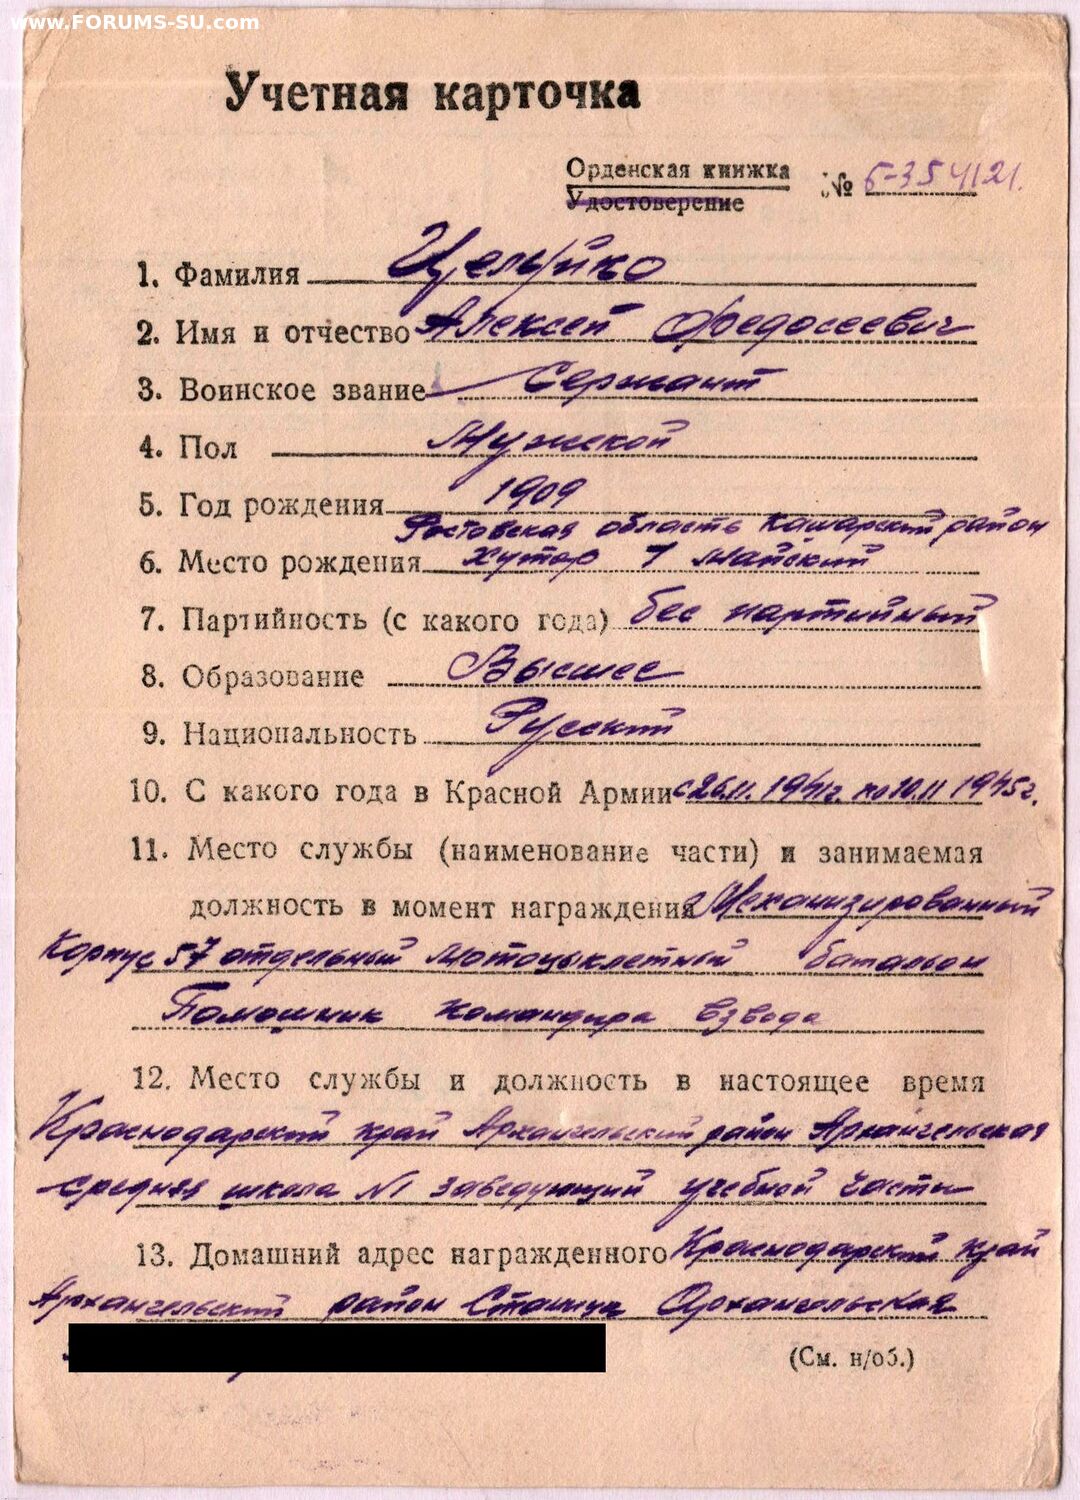 www.FORUMS-SU.com
Учетная карточка
Орденская книжка
Удостоверение
№ Б-354121.
1. Фамилия Целуйко
2. Имя и отчество Алексей Федосеевич
3. Воинское звание Сержант
4. Пол Мужской
5. Год рождения 1909
Ростовская область Кашарский район
6. Место рождения хутор 1 Майский
7. Партийность (с какого года) бес партийный
8. Образование Высшее
9. Национальность Русский
10. С какого года в Красной Армии с 26.11.1941г. по 10.11 1945г.
11. Место службы (наименование части) и занимаемая
должность в момент награждения Механизированный
Корпус 57 отдельный мотоцыклетный батальон
Помошник командира взвода
12. Место службы и должность в настоящее время
Краснодарский край Архангельский район Архангельская
средняя школа №1 заведующий учебной часты
13. Домашний адрес награжденного Краснодарский край
Архангельский район Станица Архангельская
(См. н/об.)